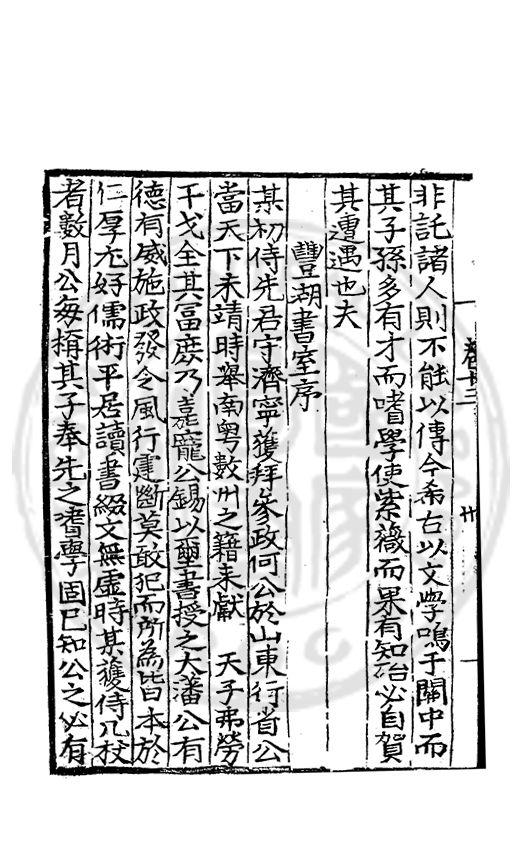 非託諸人則不能以傳今希古以文學鳴于閩中而
其子孫多有才而嗜學使紫薇而果有知殆必自賀
其遭遇也夫
豐湖書室序
某初侍先君守濟寧獲拜參政何公於山東行省公
當天下未靖時舉南粵數州之籍来獻 天子弗勞
干戈全其富庶乃嘉寵公錫以璽書授之大藩公有
德有威施政發令風行霆斷莫敢犯而所為皆本於
仁厚尤好儒術平居讀書綴文無虛時某獲侍几杖
者數月公每稱其子奉先之嗜學固已知公之必有
卷十三
卅